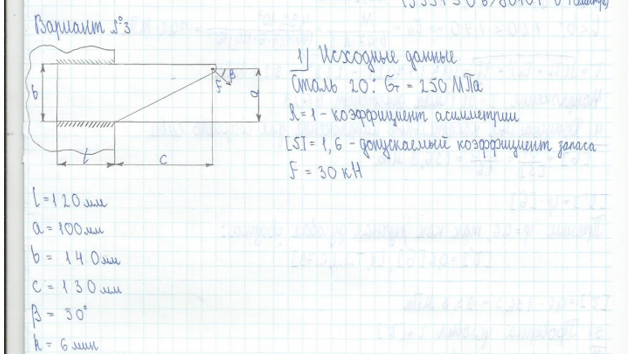 Вариант №3
b
l
c
F
β
a
1) Исходные данные
Сталь 20: σт = 250 МПа
R = 1 - коэффициент асимметрии
[S] = 1,6 - допускаемый коэффициент запаса
F = 30 кН
l = 120 мм
a = 100 мм
b = 140 мм
c = 130 мм
β = 30°
k = 6 мин